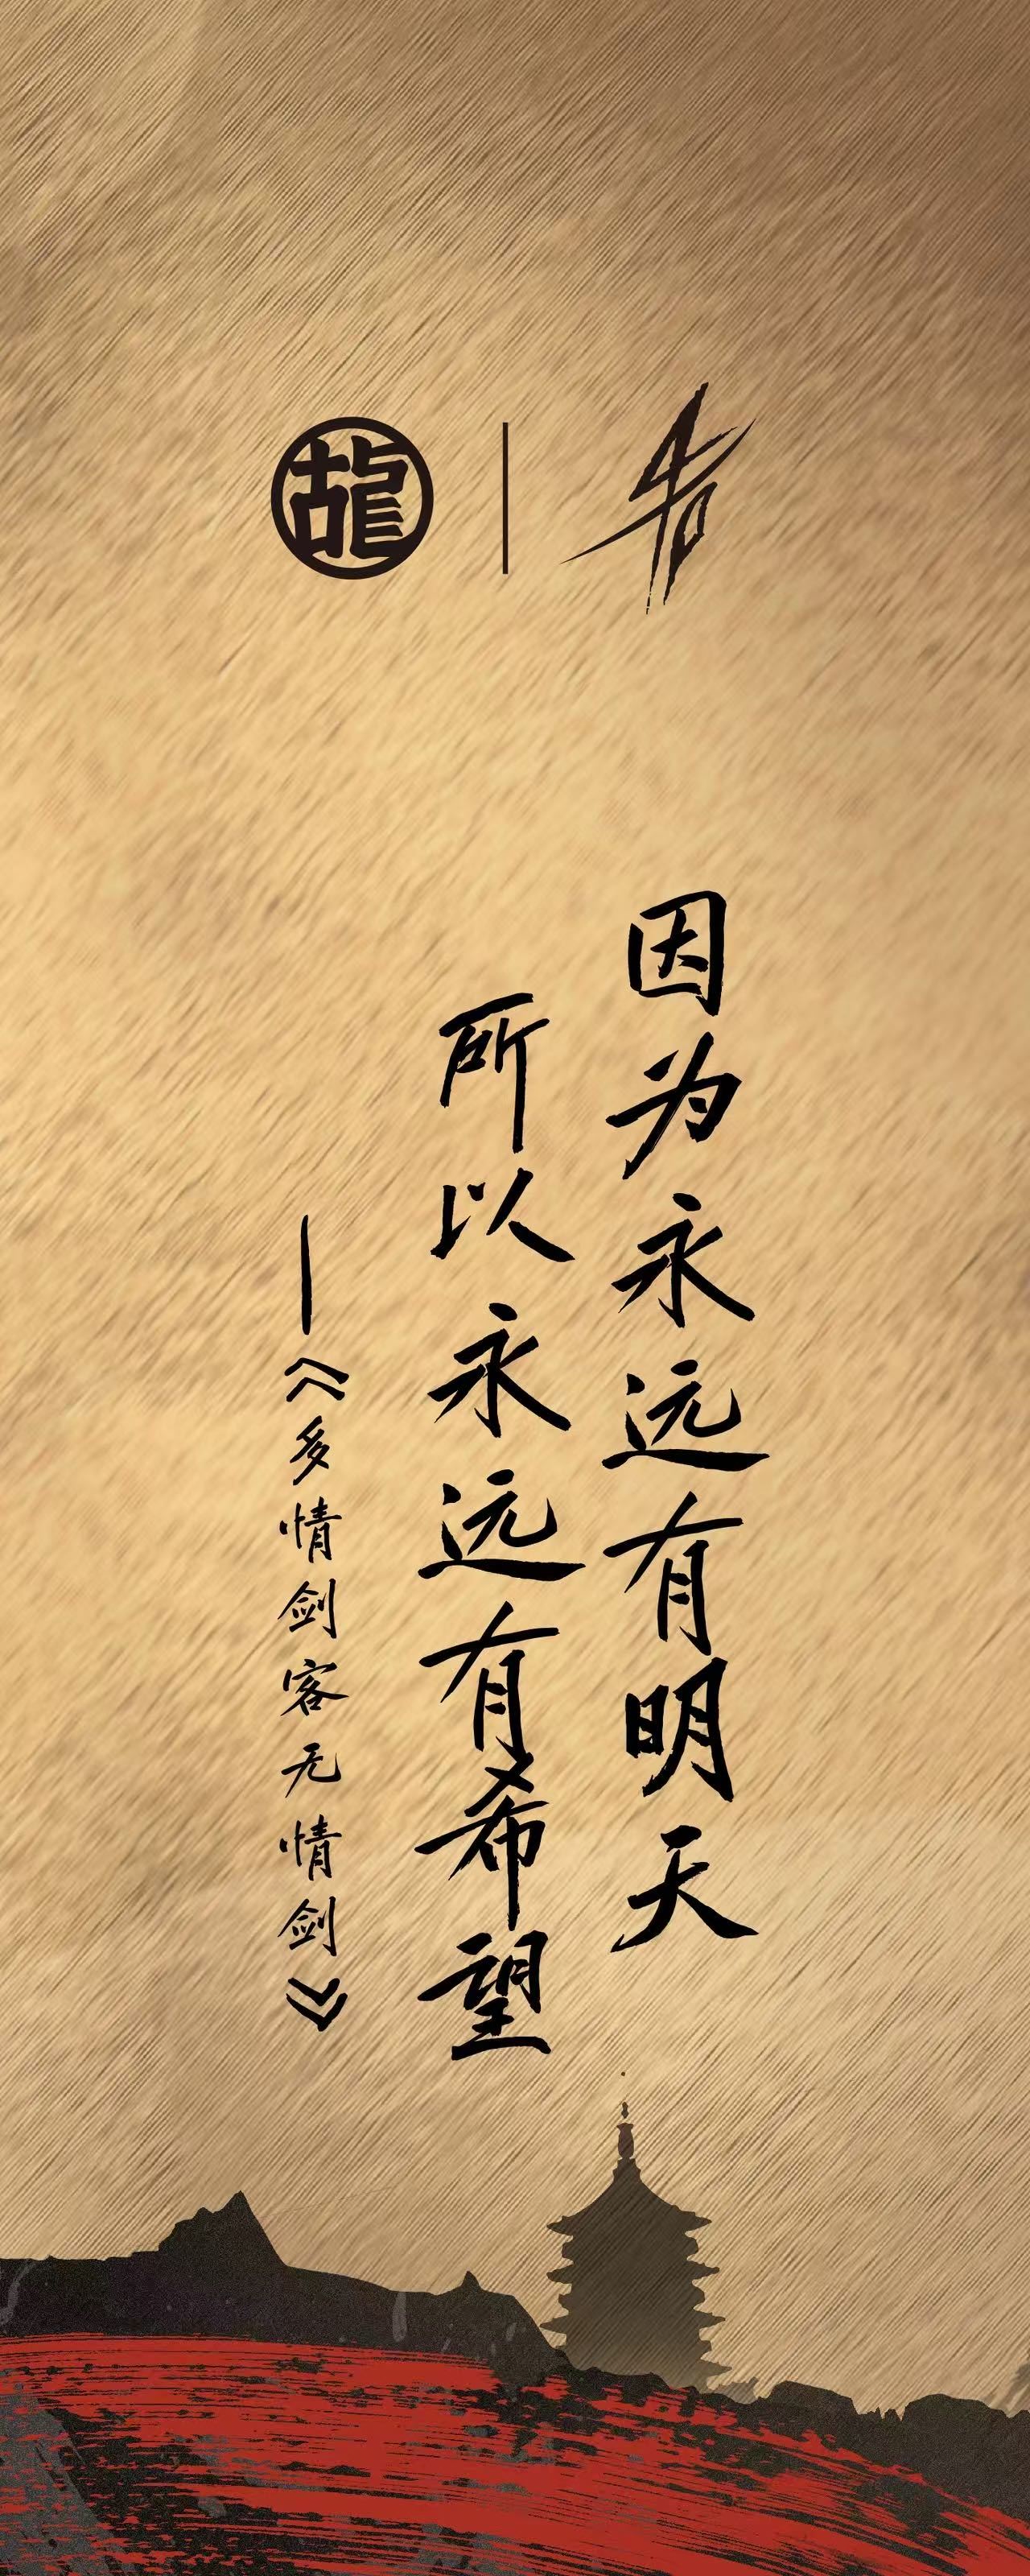 因为永远有明天
所以永远有希望
—《多情剑客无情剑》